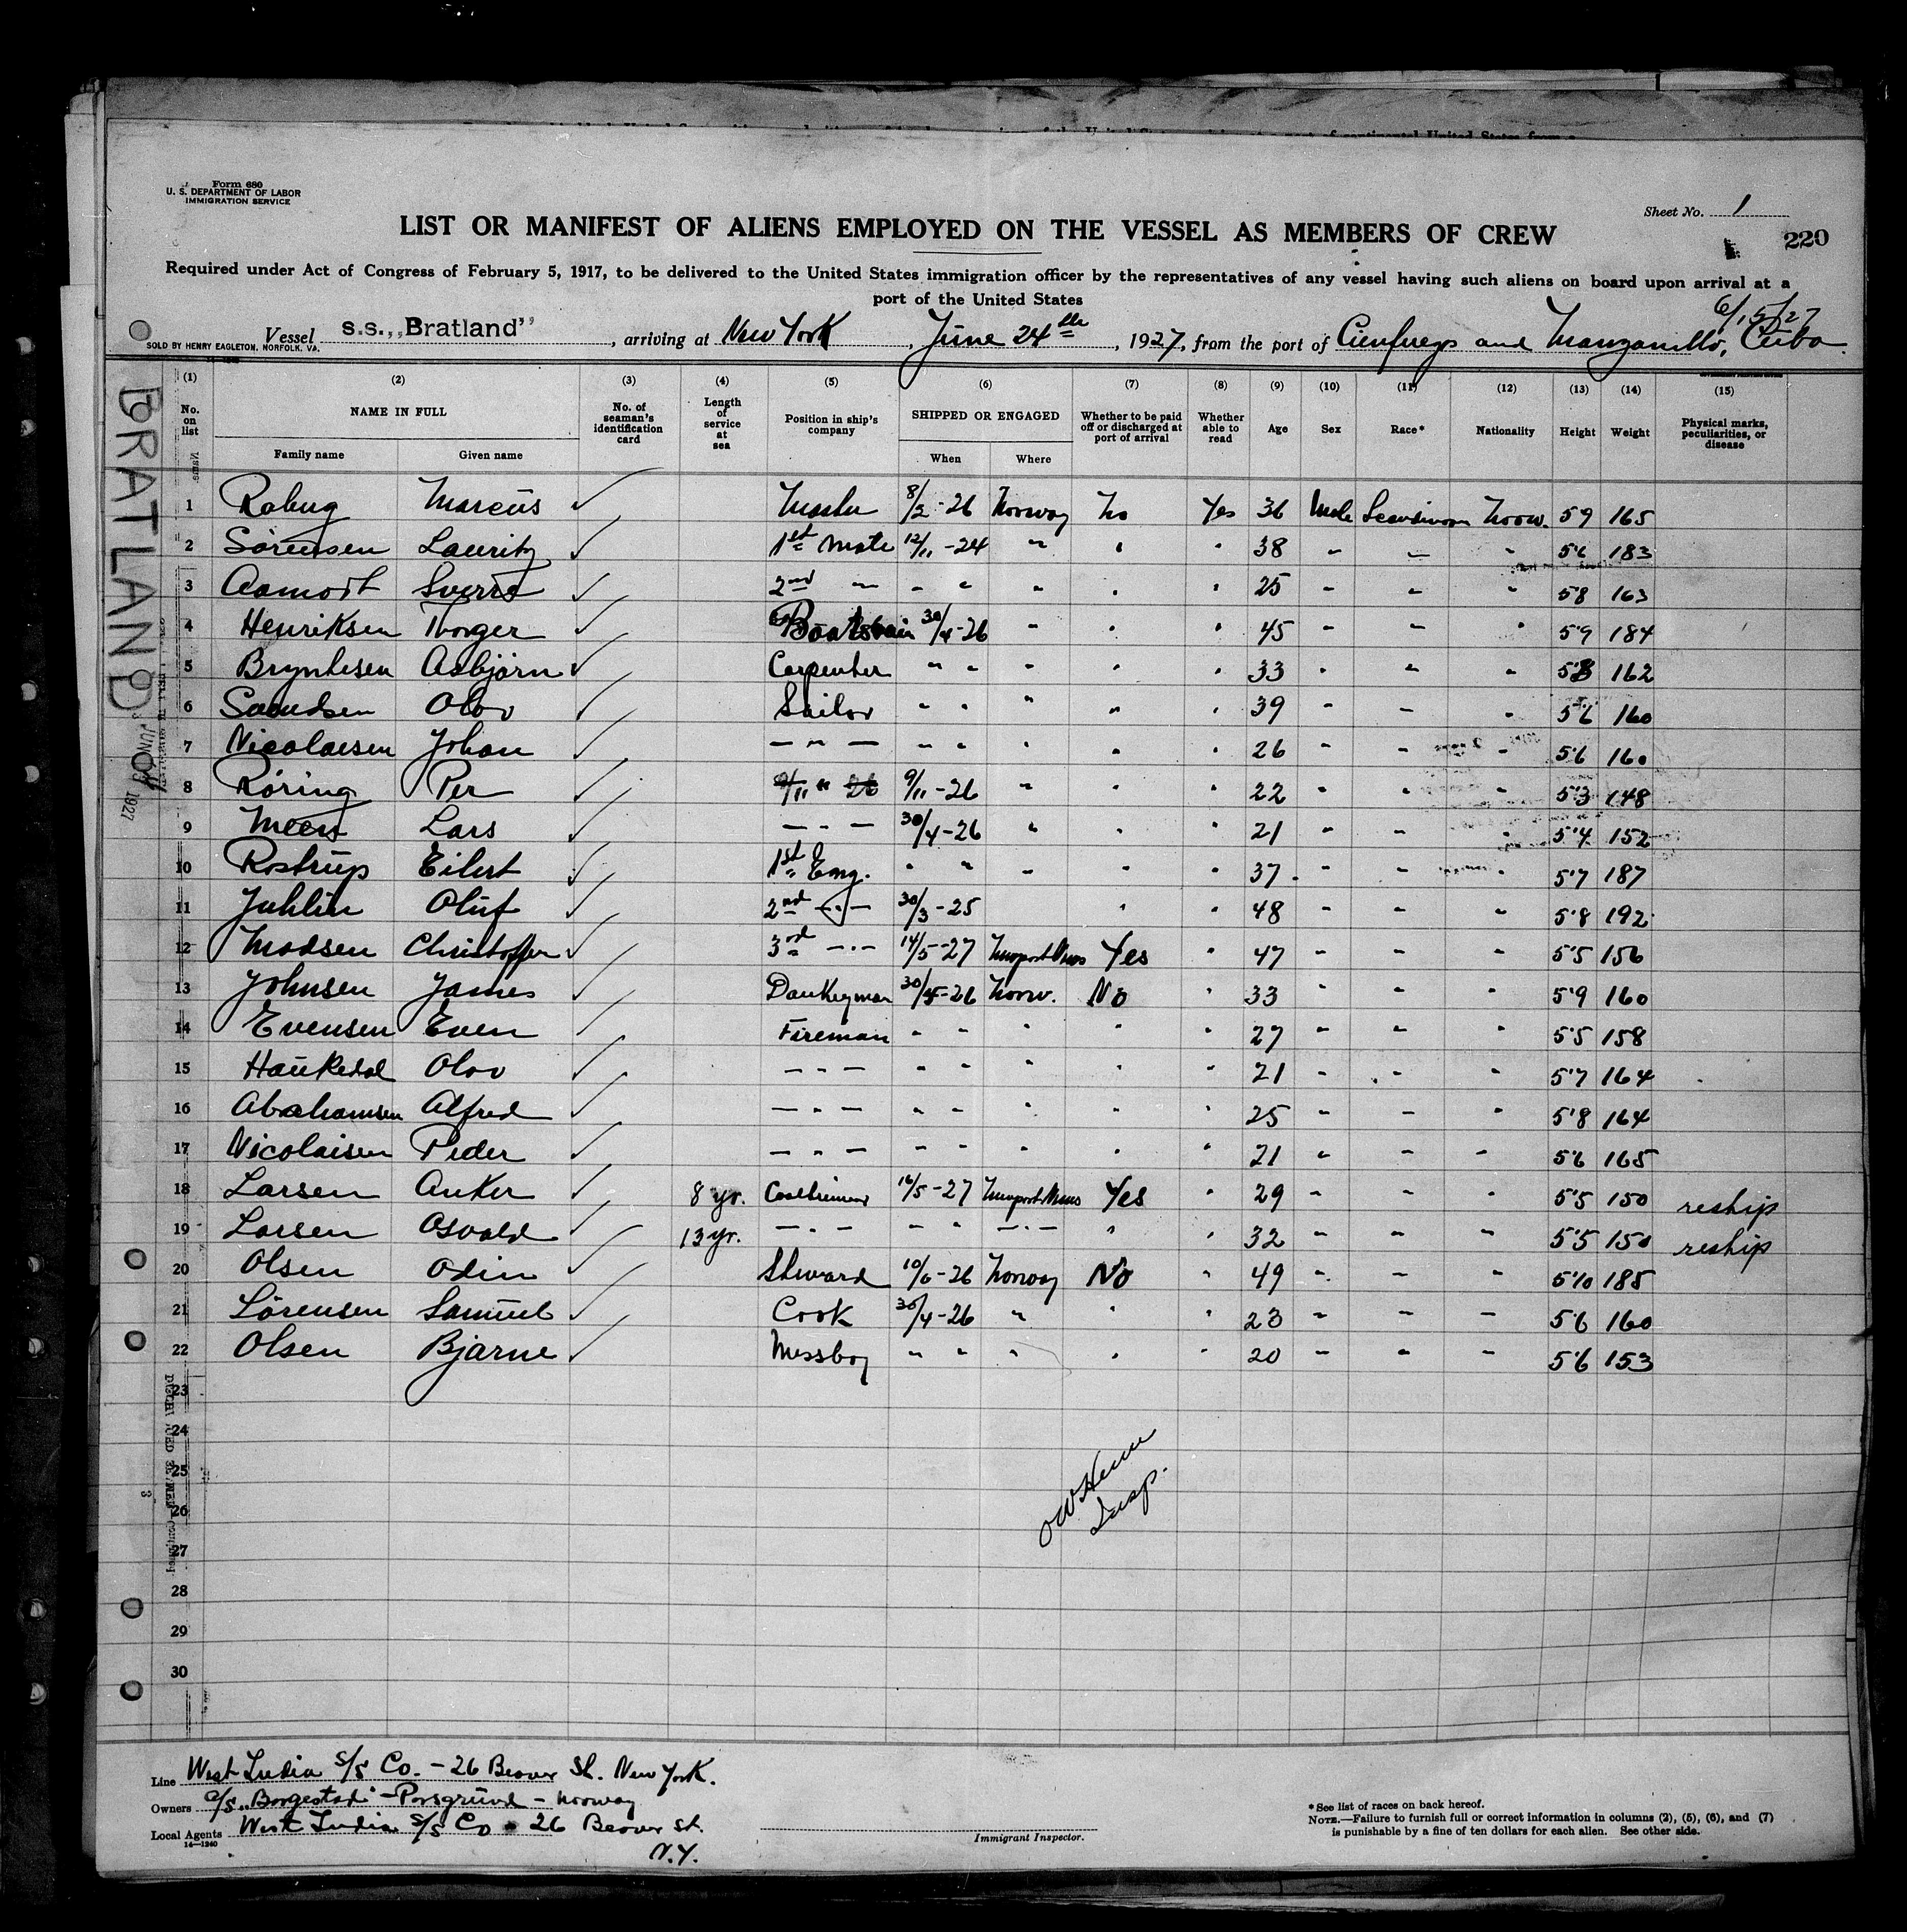 Form 680
U. S. DEPARTMENT OF LABOR
IMMIGRATION SERVICE
Sheet No. 1
LIST OR MANIFEST OF ALIENS EMPLOYED ON THE VESSEL AS MEMBERS OF CREW
220
Required under Act of Congress of February 5, 1917, to be delivered to the United States immigration officer by the representatives of any vessel having such aliens on board upon arrival at a
port of the United States
6/15/27
Vessel s.s. „Bratland" , arriving at New York , June 24th , 1927, from the port of Cienfuegos and Manzanillo, Cuba
SOLD BY HENRY EAGLETON, NORFOLK, VA.
BRATLAND
(1) (2) (3) (4) (5) (6) (7) (8) (9) (10) (11) (12) (13) (14) (15)
No. on list NAME IN FULL No. of seaman's identification card Length of service at sea Position in ship's company SHIPPED OR ENGAGED Whether to be paid off or discharged at port of arrival Whether able to read Age Sex Race* Nationality Height Weight Physical marks, peculiarities, or disease
Family name Given name When Where
1 Marcus Master 8/2-26 Norway No Yes 36 Male Norw. 5 9 165
2 Sörensen Lauritz 1st Mate 12/11-24 " " " 38 " " " 5'6 183
3 Aamodt Sverre 2nd " " " " " " 25 " " " 5'8 163
4 Henriksen Thorger Boatswain 30/4-26 " " " 45 " " " 5'9 184
5 Asbjörn Carpenter " " " " " 33 " " " 162
6 Olav Sailor " " " " " 39 " " " 5'6 160
7 Nicolaisen Johan — " — " " " " " 26 " " " 5'6 160
8 Röring Per 9/11-26 " " " 22 " " " 5'3 148
9 Lars — " — 30/4-26 " " " 21 " " " 5'4 152
10 Rostrup Eilert 1st Eng. " " " " " 37 " " " 5'7 187
11 Juhlin Oluf 2nd — " — 30/3-25 " " 48 " " " 5'8 192
12 Madsen Christoffer 3rd — " — 14/5-27 Newport News Yes " 47 " " " 5'5 156
13 Johnsen James Donkeyman 30/4-26 Norw. No " 33 " " " 5'9 160
14 Evensen Even Fireman " " " " " 27 " " " 5'5 158
15 Haukedal Olav — " — " " " " " 21 " " " 5'7 164
16 Abrahamsen Alfred — " — " " " " " 25 " " " 5'8 164
17 Nicolaisen Peder — " — " " " " " 21 " " " 5'6 165
18 Larsen Anker 8 yr. 14/5-27 Newport News Yes " 29 " " " 5'5 150 reship
19 Larsen Osvald 13 yr. — " — " " — " — " " 32 " " " 5'5 150 reship
20 Olsen Odin Steward Norway No " 49 " " " 5'10 185
21 Sörensen Samuel Cook 30/4-26 " " " 23 " " " 5'6 160
22 Olsen Bjarne Messboy " " " " " 20 " " " 5'6 153
23
24
25
26
27
28
29
30
Insp.
Line West India S/S Co. - 26 Beaver St. New York.
Owners A/S „Borgestad" - Porsgrund - Norway
Local Agents West India S/S Co - 26 Beaver St.
N.Y.
14—1240
Immigrant Inspector.
* See list of races on back hereof.
NOTE.—Failure to furnish full or correct information in columns (2), (5), (6), and (7)
is punishable by a fine of ten dollars for each alien. See other side.